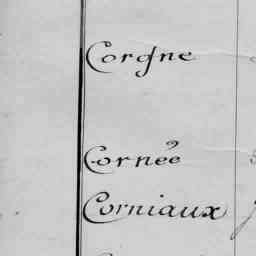 Corgne
Cornée
Corniaux